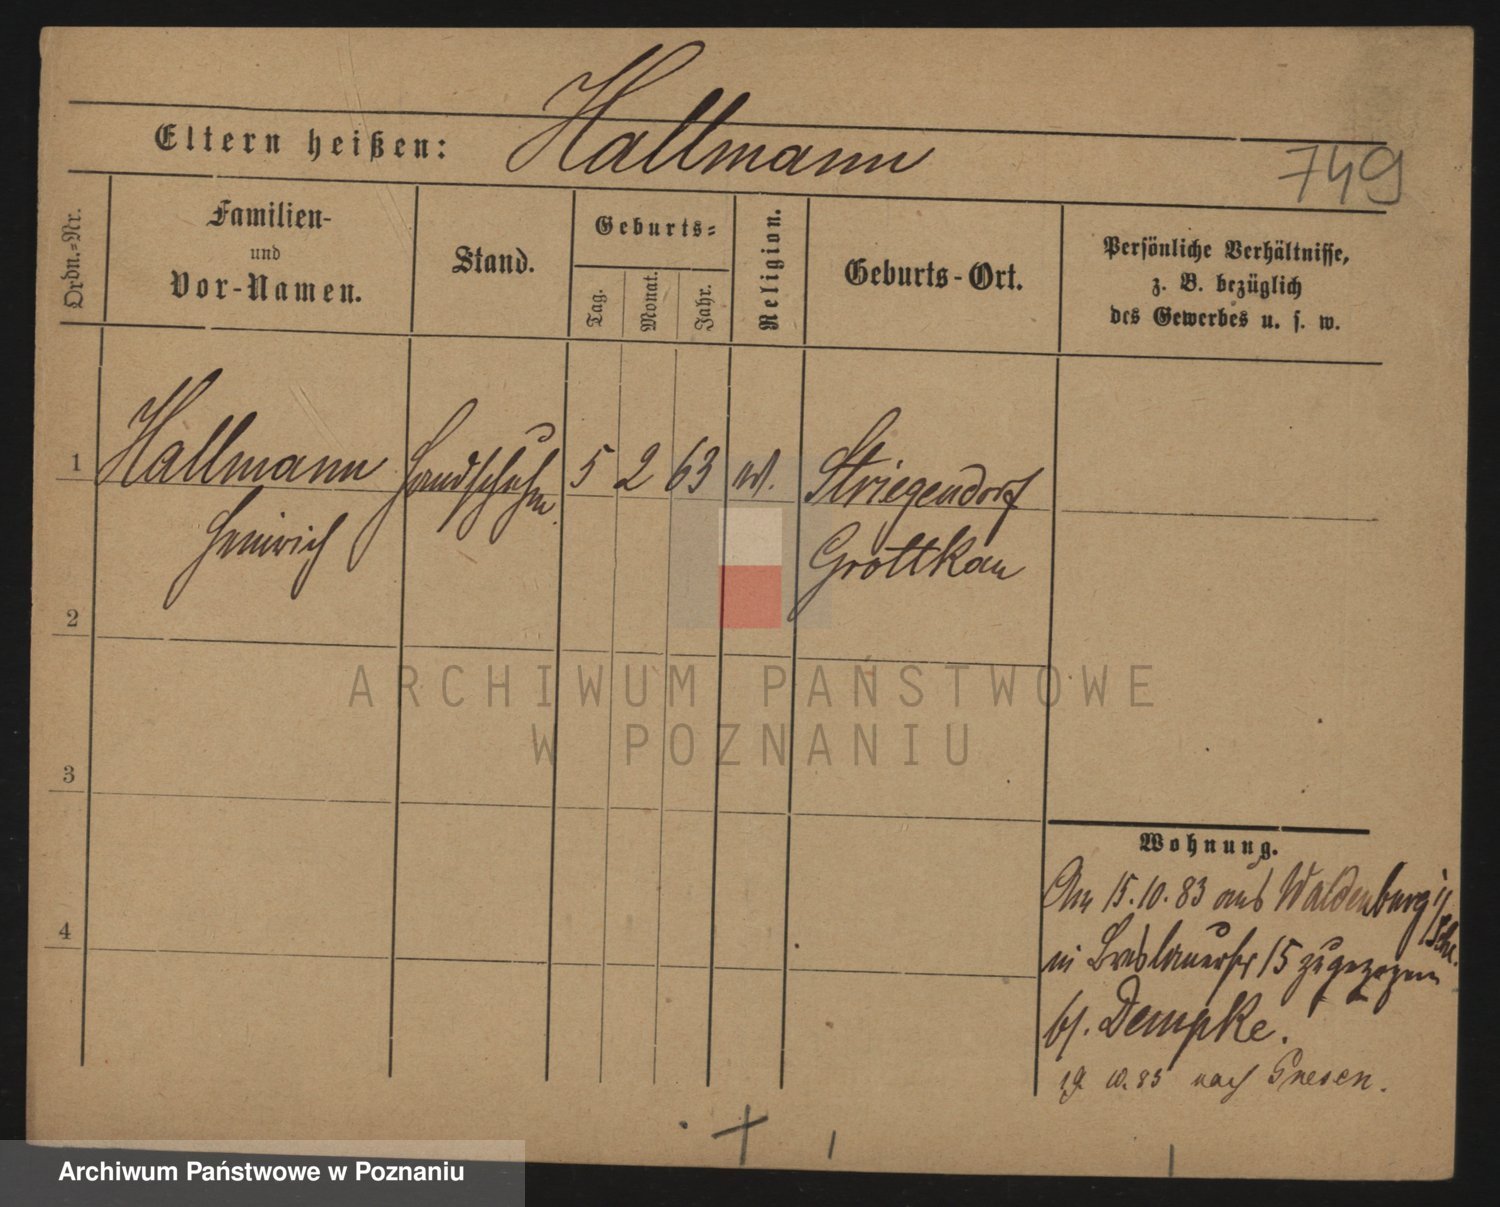 Eltern heißen: Hallmann
749
Ordn.=Nr.
Familien-
und
Vor-Namen.
Stand.
Geburts=
Tag.
Monat.
Jahr.
Religion.
Geburts-Ort.
Persönliche Verhältnisse,
z. B. bezüglich
des Gewerbes u. s. w.
1 Hallmann Handschuhm. 5 2 63 Striegendorf
Heinrich Grottkau
2
3
4
Wohnung.
15.10.83 aus Waldenburg i/
Schl.
in Breslauerstr 15 zugezogen
bf. Dempke.
19 10.83 nach Gnesen.
ARCHIWUM PAŃSTWOWE
W POZNANIU
Archiwum Państwowe w Poznaniu